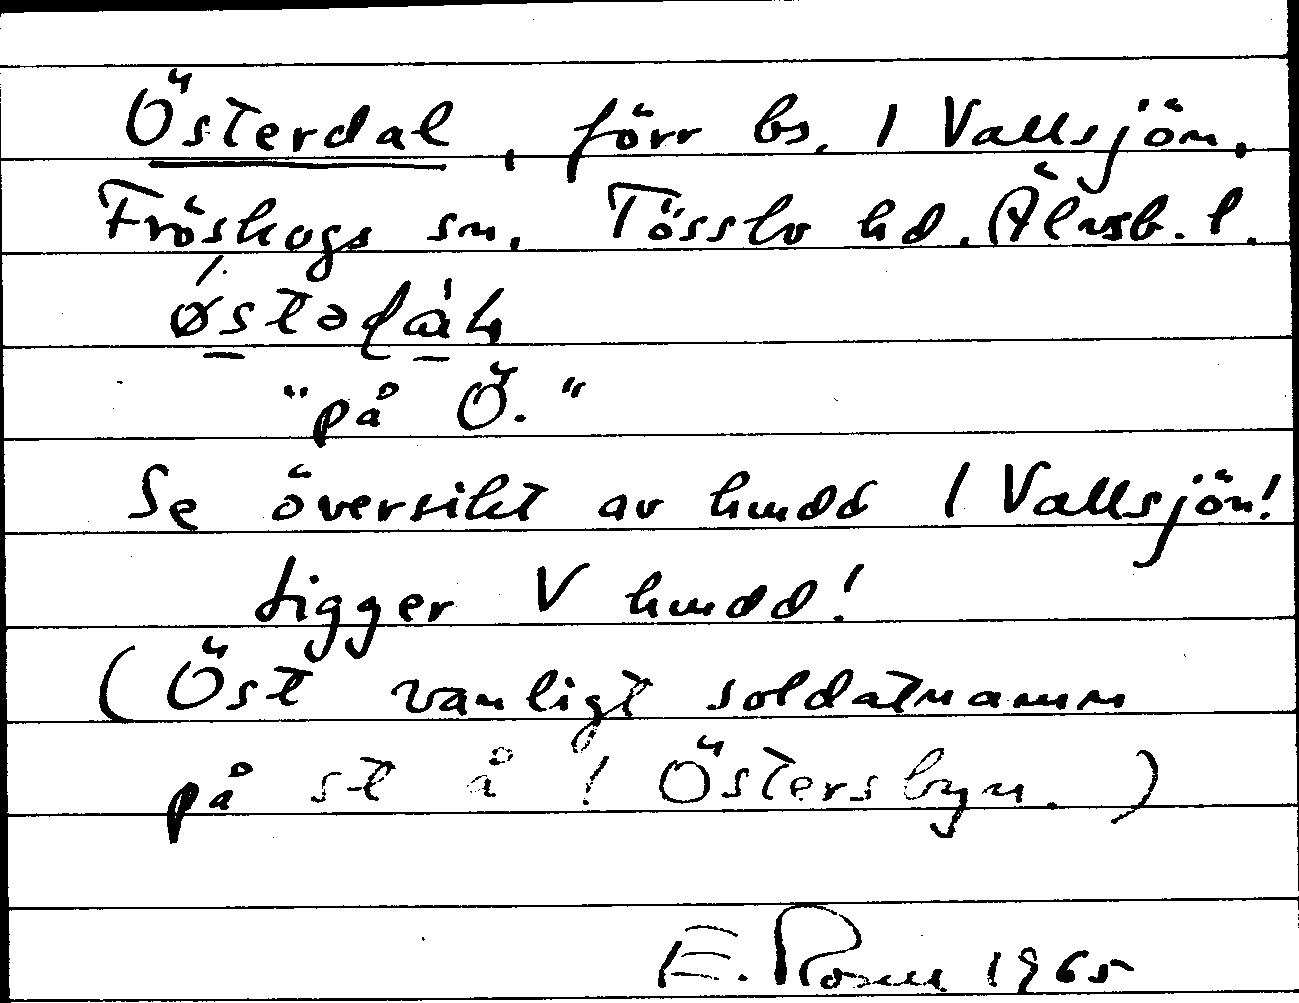 Österdal, förr bs. i Vallsjön,
Fröskogs sn, Tössbo hd. Älvsb. l.
"på Ö."
Se översikt av hmdd i Vallsjön!
Ligger V hmdd!
(Öst vanligt soldatnamn
på st å i Östersbyn.)
E. Rosell 1965